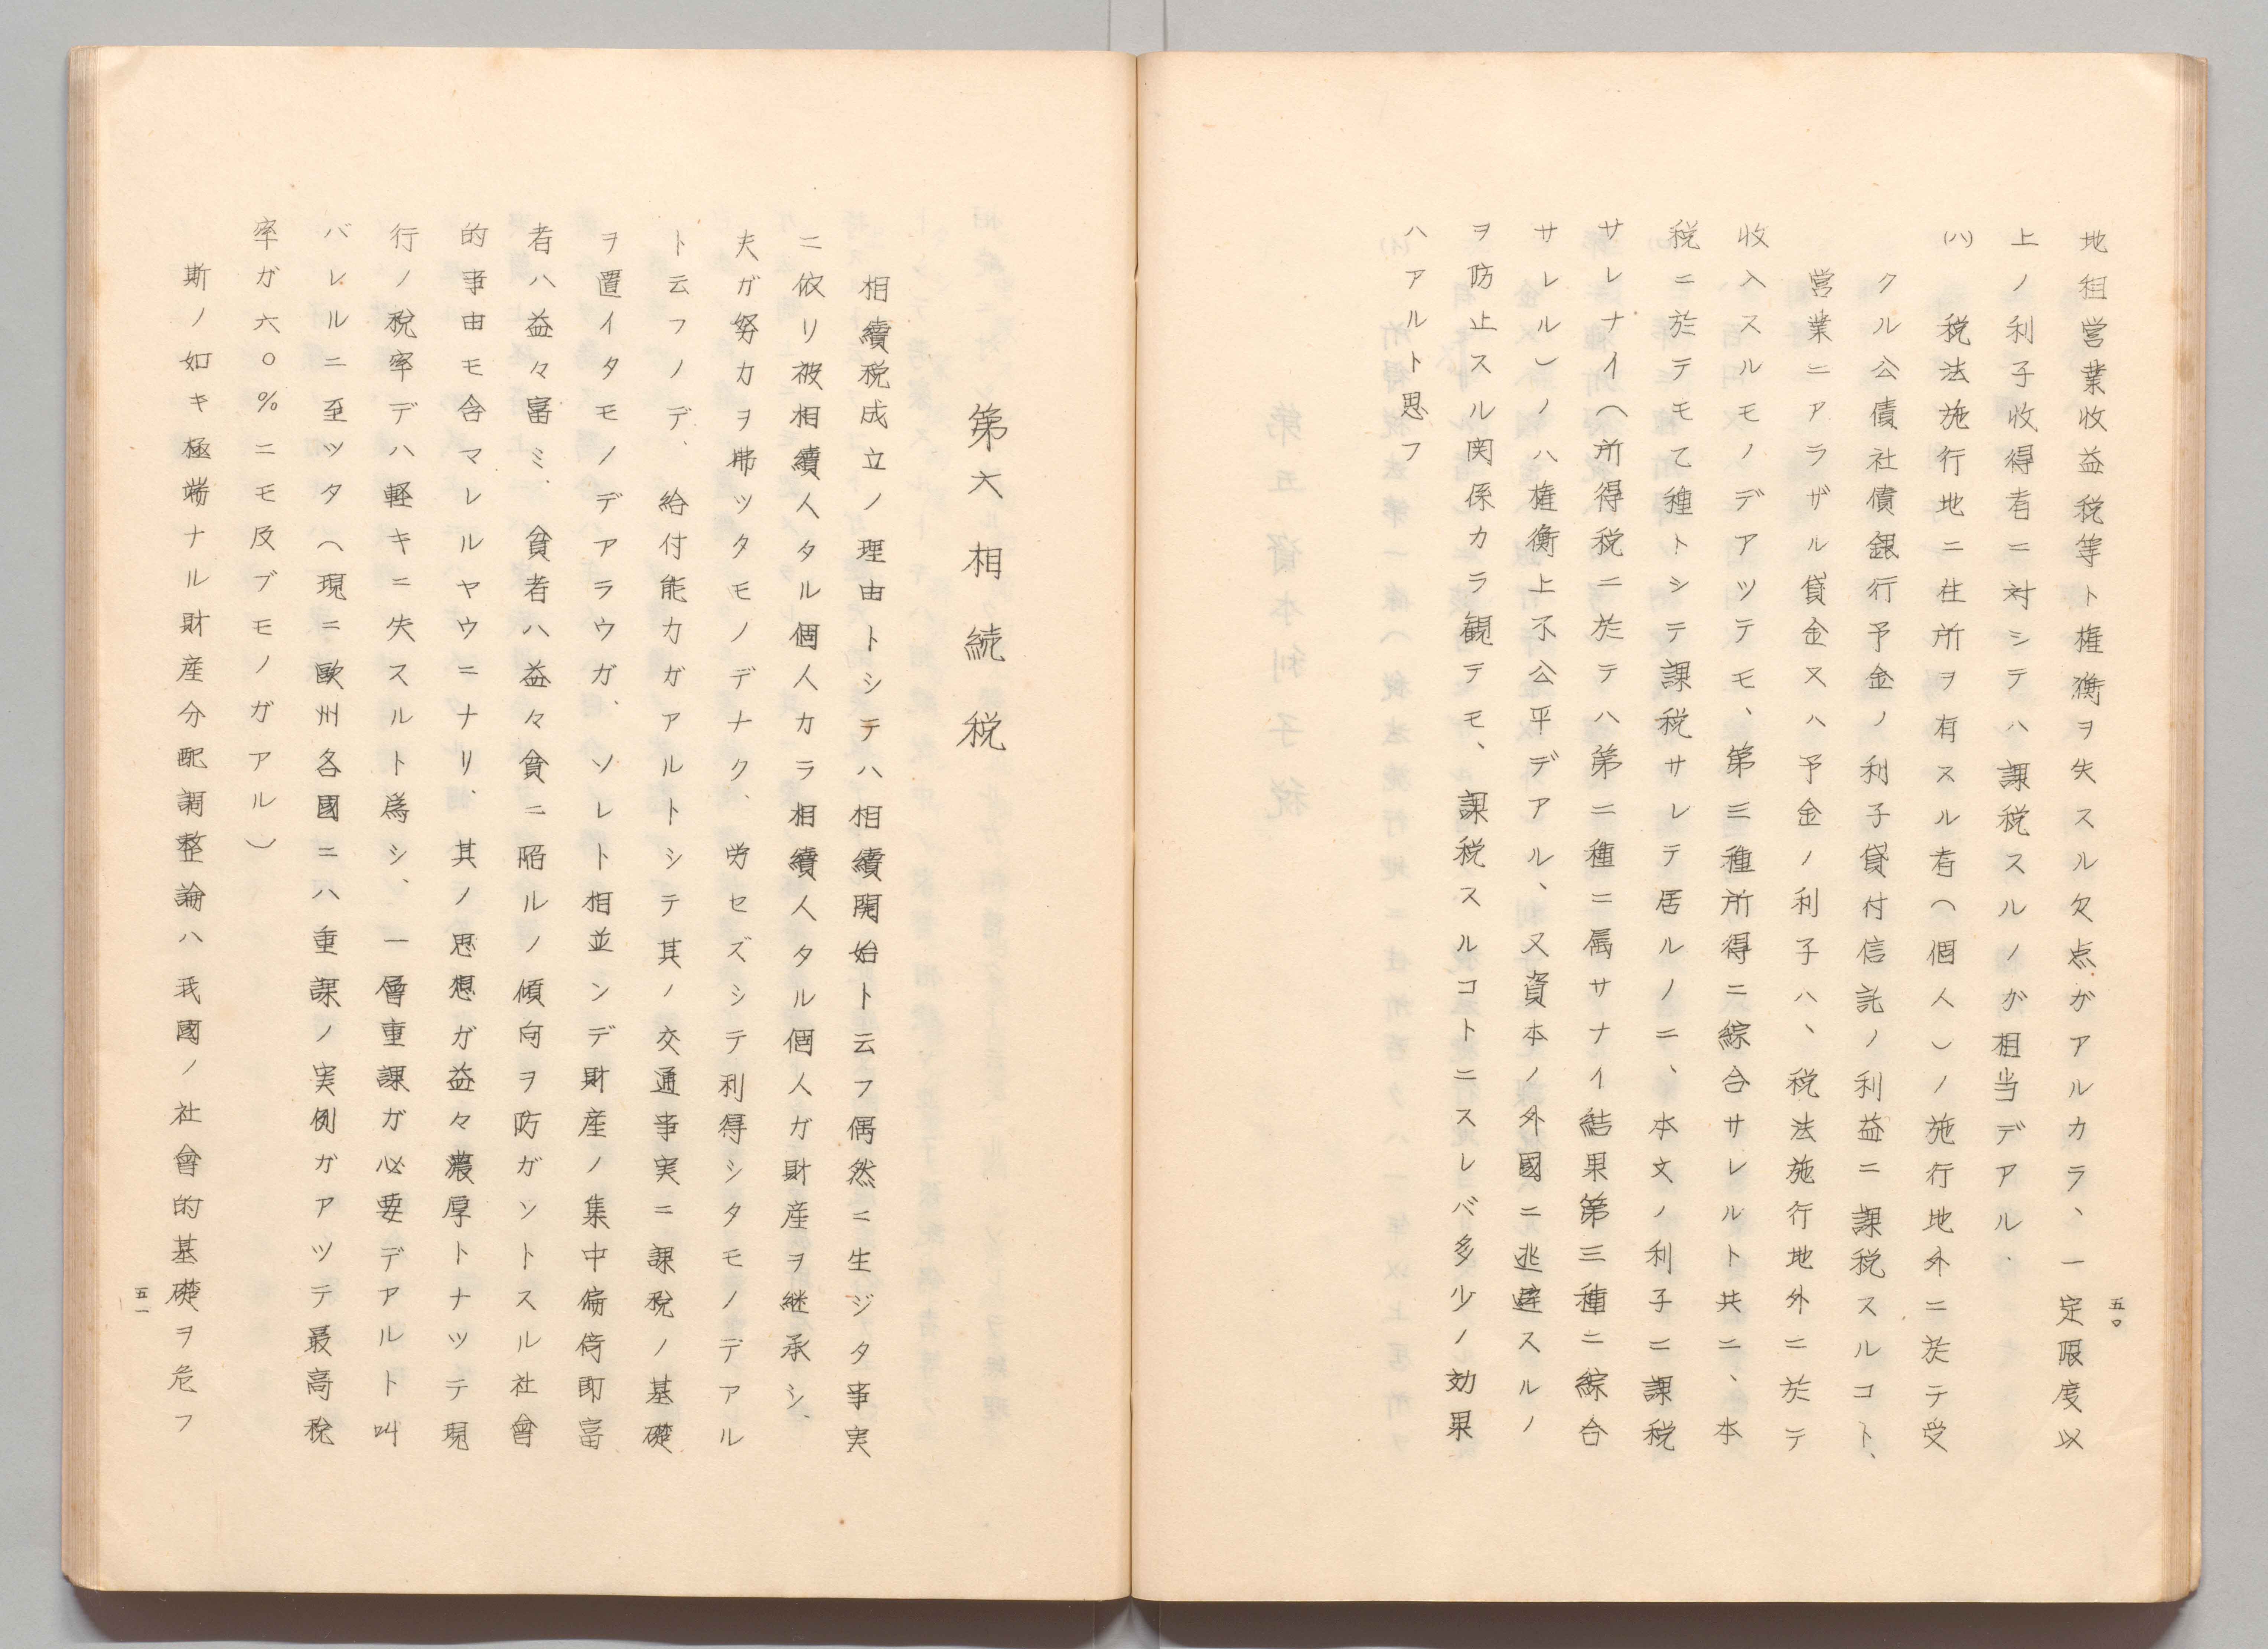 地租営業收益税等ト権衡ヲ失スル欠点ガアルカラ、一定限度以
上ノ利子收得者ニ対シテハ課税スルノガ相当デアル.
(ハ) 税法施行地ニ住所ヲ有スル者(個人)ノ施行地外ニ於テ受
クル公債社債銀行予金ノ利子貸付信託ノ利益ニ課税スルコト、
営業ニアラザル貸金又ハ予金ノ利子ハ、税法施行地外ニ於テ
收入スルモノデアツテモ、第三種所得ニ綜合サレルト共ニ、本
税ニ於テモ乙種トシテ課税サレテ居ルノニ、本文ノ利子ニ課税
サレナイ(所得税ニ於テハ第二種ニ属サナイ結果第三種ニ綜合
サレル)ノハ権衡上不公平デアル、又資本ノ外國ニ逃避スルノ
ヲ防止スル関係カラ観テモ、課税スルコトニスレバ多少ノ効果
ハアルト思フ
五〇
第六相続税
相續税成立ノ理由トシテハ相續開始ト云フ偶然ニ生ジタ事実
ニ依リ被相續人タル個人カラ相續人タル個人ガ財産ヲ継承シ、
夫ガ努力ヲ拂ツタモノデナク、労セズシテ利得シタモノデアル
ト云フノデ、給付能力ガアルトシテ其ノ交通事実ニ課税ノ基礎
ヲ置イタモノデアラウガ、ソレト相並ンデ財産ノ集中偏倚即富
者ハ益々富ミ、貧者ハ益々貧ニ陥ルノ傾向ヲ防ガントスル社會
的事由モ含マレルヤウニナリ、其ノ思想ガ益々濃厚トナツテ現
行ノ税率デハ軽キニ失スルト為シ、一層重課ガ必要デアルト叫
バレルニ至ツタ(現ニ歐州各國ニハ重課ノ実例ガアツテ最高税
率ガ六〇%ニモ及ブモノガアル)
斯ノ如キ極端ナル財産分配調整論ハ我國ノ社會的基礎ヲ危フ
五一